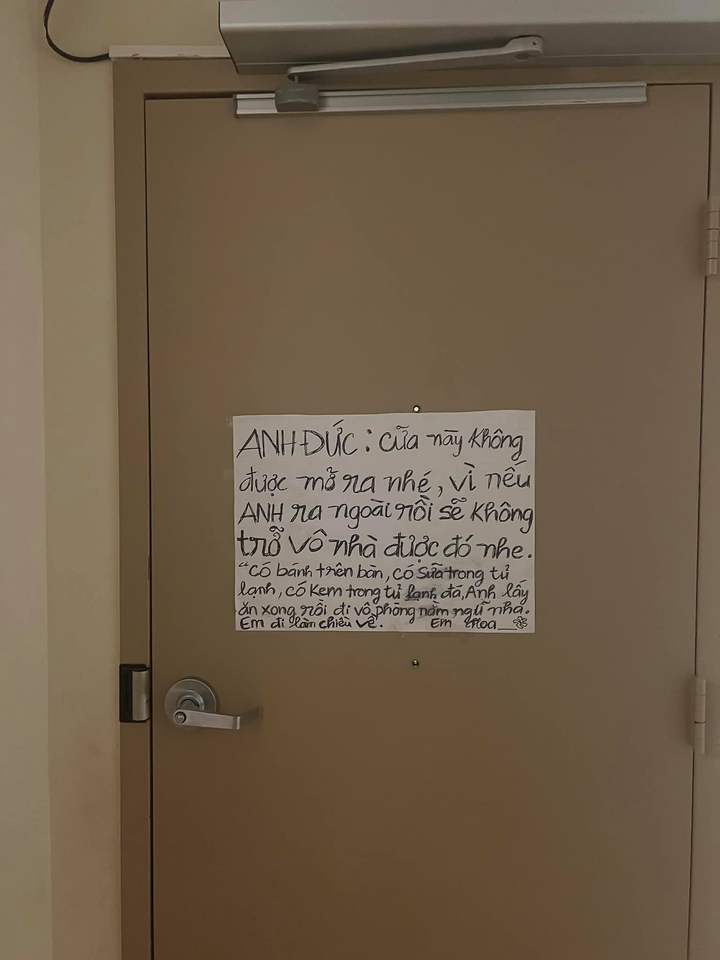 ANH ĐỨC : cửa này không
được mở ra nhé, vì nếu
ANH ra ngoài rồi sẽ không
trở vô nhà được đó nhe.
"có bánh trên bàn, có sữa trong tủ
lạnh, có kem trong tủ lạnh đá, Anh lấy
ăn xong rồi đi vô phòng nằm ngủ nha.
Em đi làm chiều về. Em Hoa